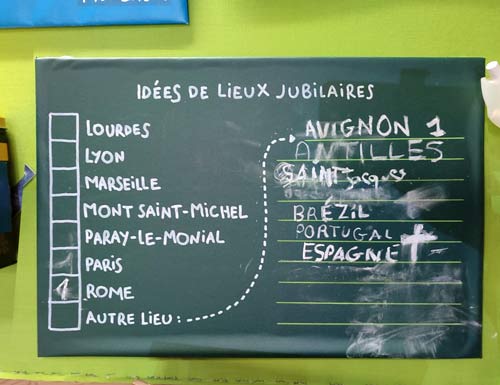 IDÉES DE LIEUX JUBILAIRES
LOURDES
LYON
MARSEILLE
MONT SAINT-MICHEL
PARAY-LE-MONIAL
PARIS
1 ROME
AUTRE LIEU :
AVIGNON 1
ANTILLES
SAINT Jacques
BRÉZIL
PORTUGAL
ESPAGNE